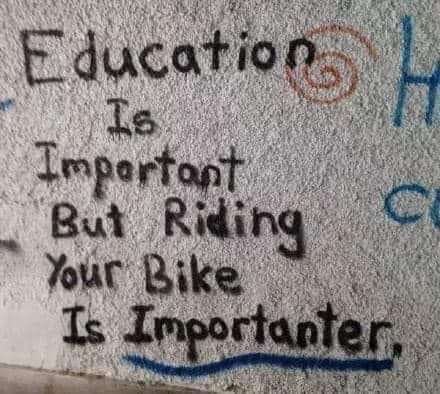 Education
Is
Important
But Riding
Your Bike
Is Importanter.
H